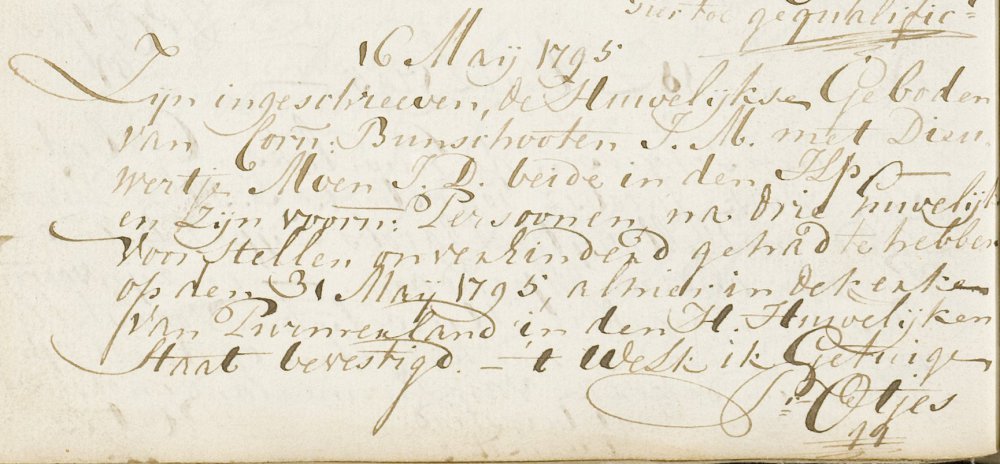 hiertoe gequalific=
16 Maÿ 1795
Zijn ingeschreeven, de Huwelijkse Geboden
van Corn: Bunschooten J. M. met Dieu„
wertje Moen J. D. beide in den Ilp
en Zijn voorn: Persoonen na drie huwelijk
voorstellen onverhinderd gehad te hebben
op den 31 Maÿ 1795, alhier in de kerke
van Purmerland in den H. Huwelijken
Staat bevestigd. — 't Welk ik Getuige
P:r Oetjes